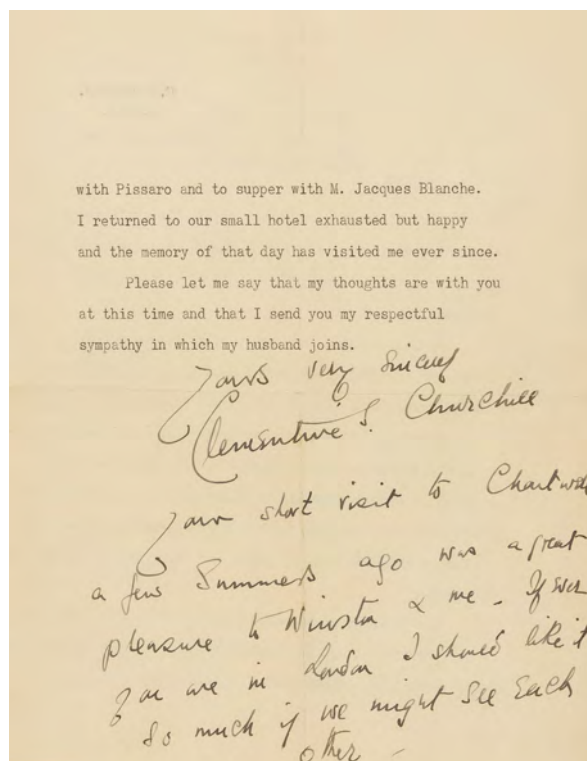 with Pissaro and to supper with M. Jacques Blanche.
I returned to our small hotel exhausted but happy
and the memory of that day has visited me ever since.
Please let me say that my thoughts are with you
at this time and that I send you my respectful
sympathy in which my husband joins.
Yours very
Clementine S. Churchill
Your short visit to
a few Summers ago was a great
pleasure to Winston & me - If
you are in London I should like it
so much if we might see Each
other -